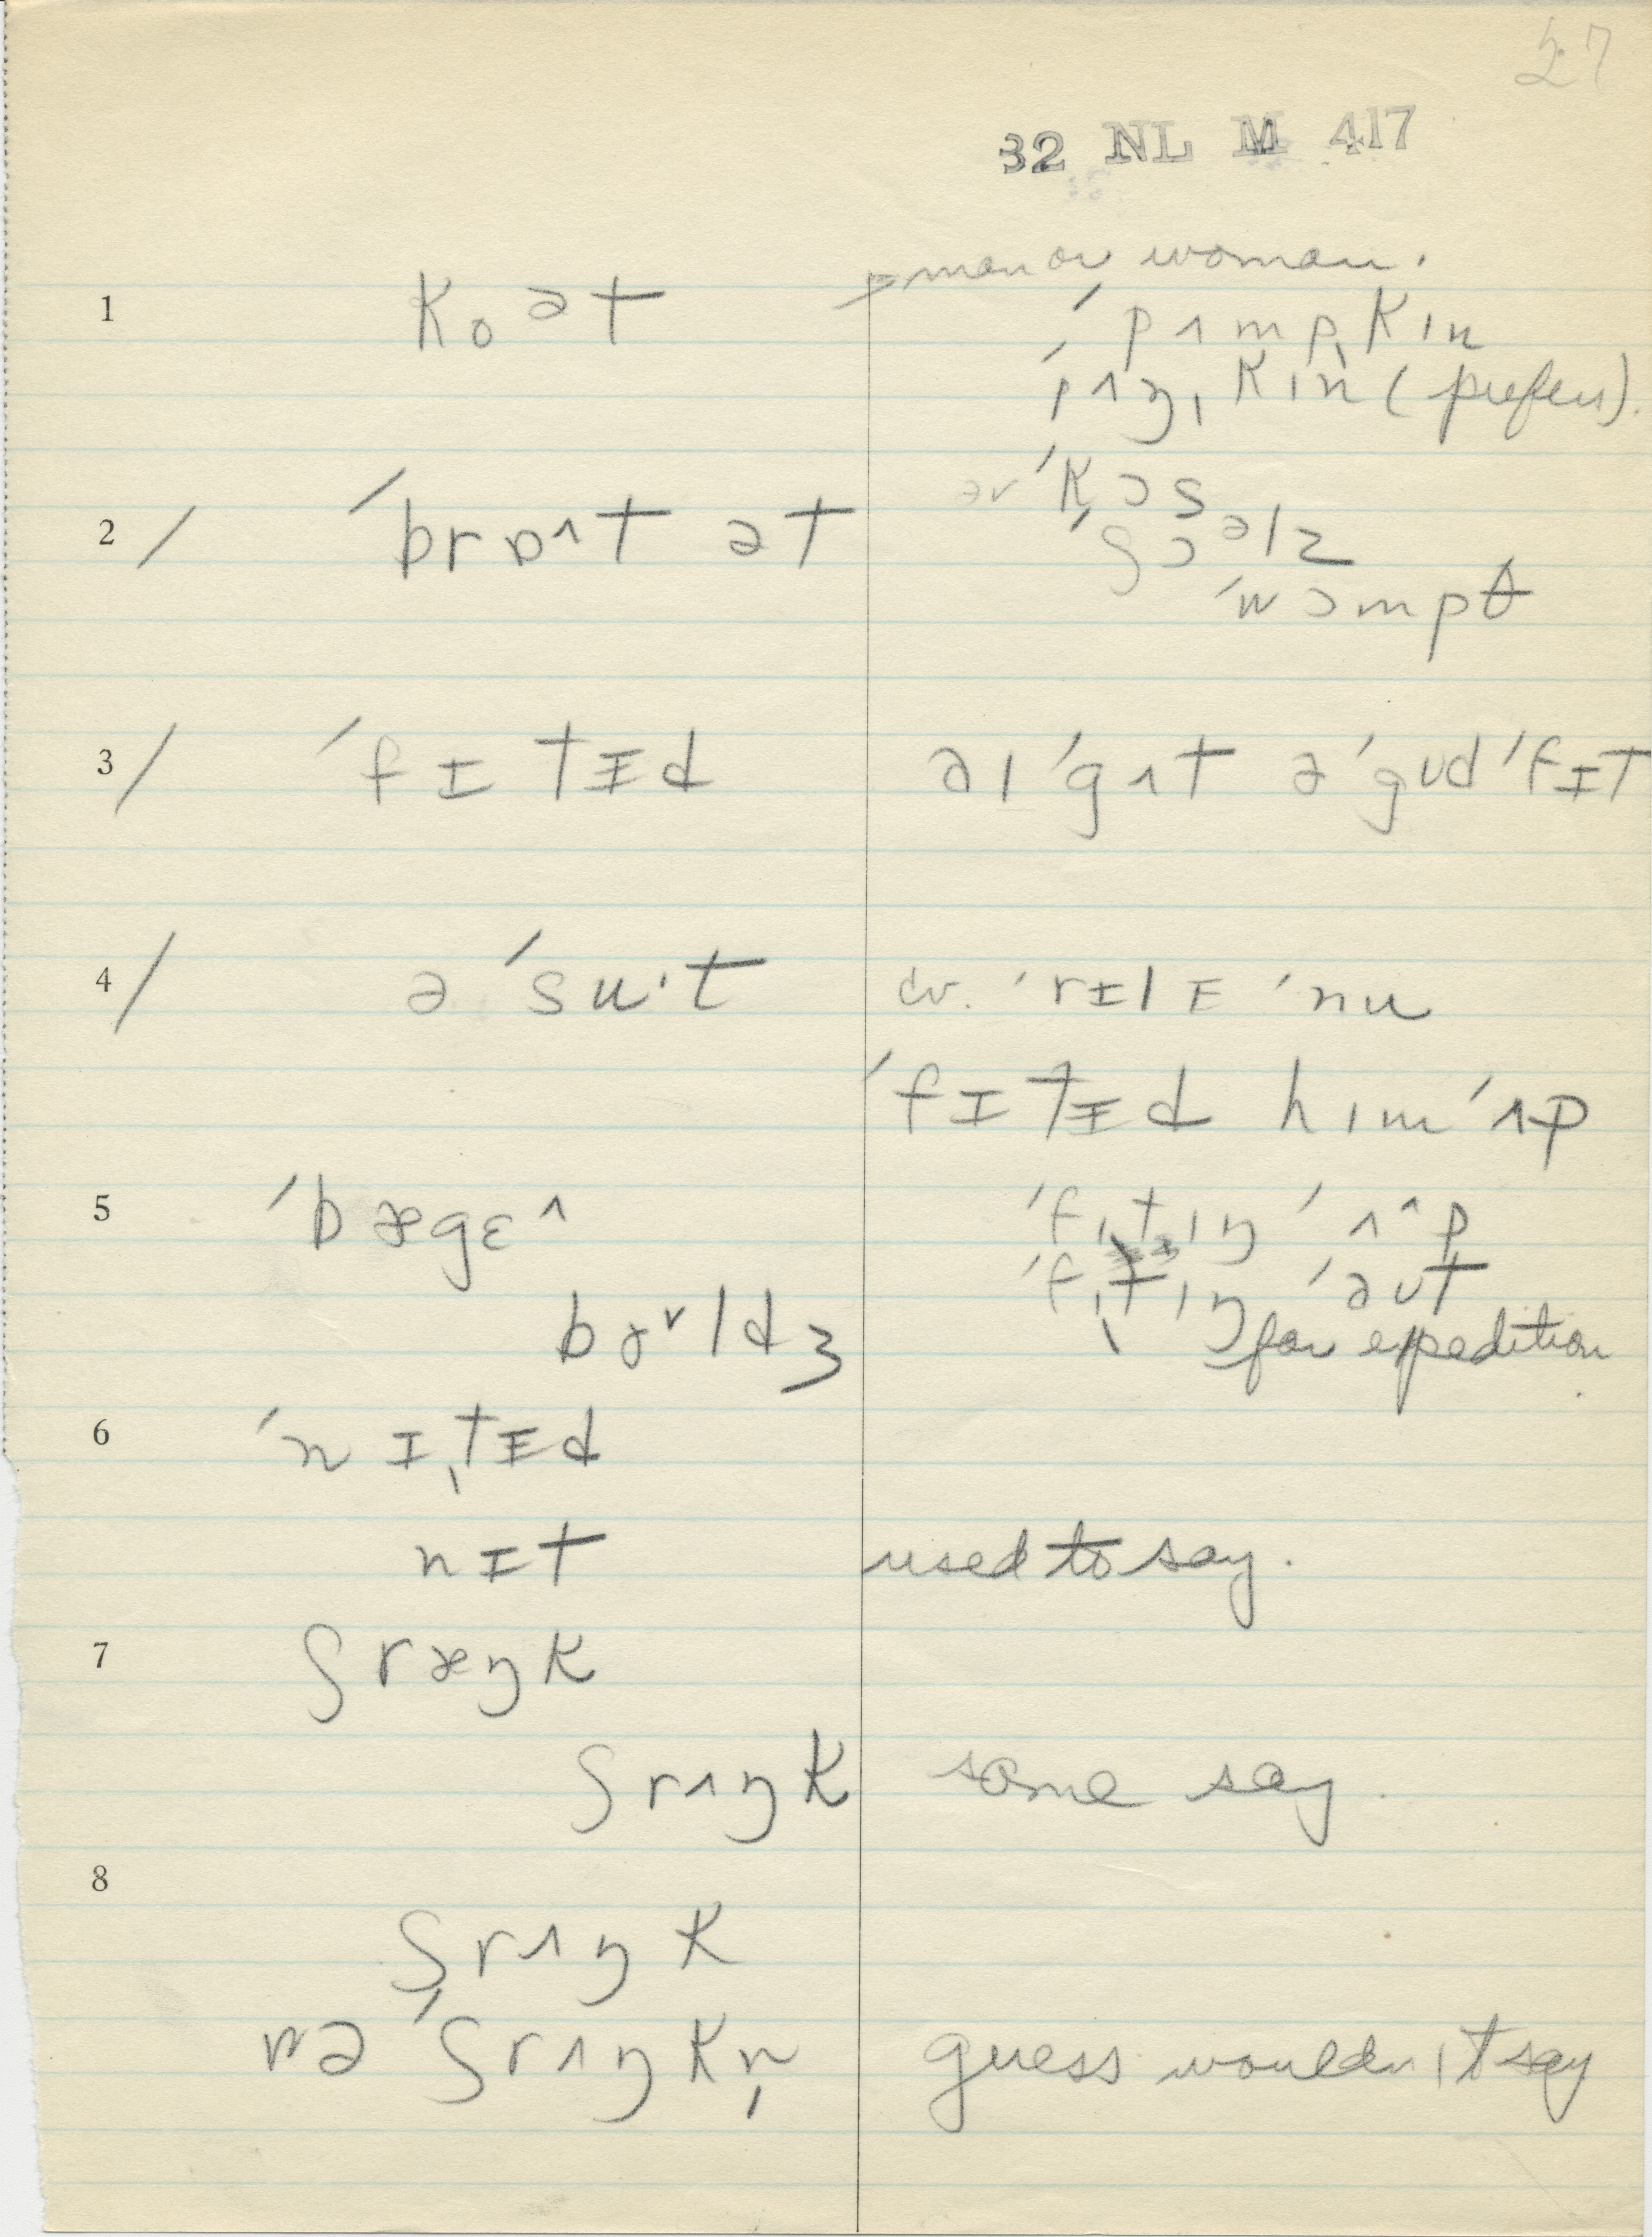 27
32 NL M 417
man or woman.
1 koət
ˈpʌmpˌkɪn
ˈpʌŋˌkɪn (prefers).
2 / ˈbrɒʌt ət
ər ˈkɔs
ˈʃɔəlz
ˈwɔmpθ
3 / ˈfɪtɪd əɪ ˈgʌt ə ˈgʊd ˈfɪt
4 / ə ˈsu·t cv. ˈrɪlɪ ˈnu
ˈfɪtɪd hɪm ˈʌp
5 ˈbægɛ^
ˈfɪtɪŋ ˈʌ^p
ˈfɪtɪŋ ˈəʊt
bɚldʒ for expedition
6 ˈnɪˌtɪd
nɪt used to say.
7 ʃræŋk
ʃrʌŋk some say.
8
ʃrʌŋk
və ˈʃrʌŋkn̩ guess wouldn't say